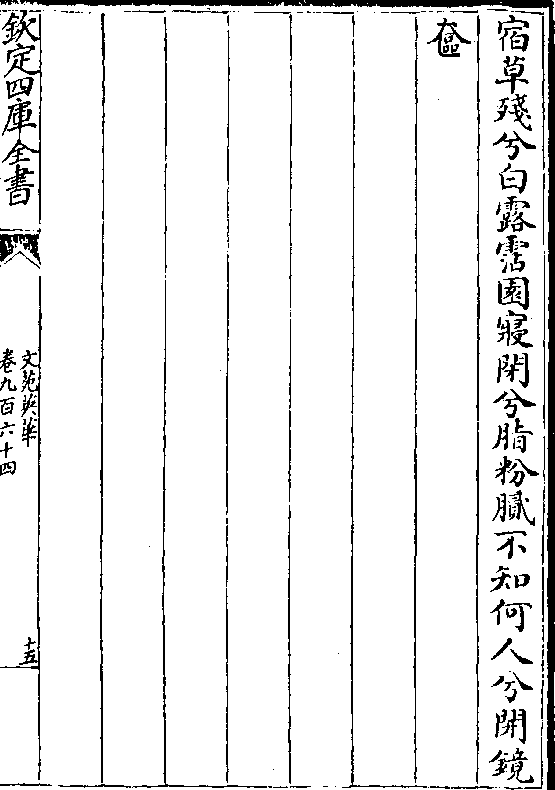 宿草殘兮白露霑園寢閉兮脂粉膩不知何人兮開鏡
奩
欽定四庫全書
文苑英華
卷九百六十四
十五